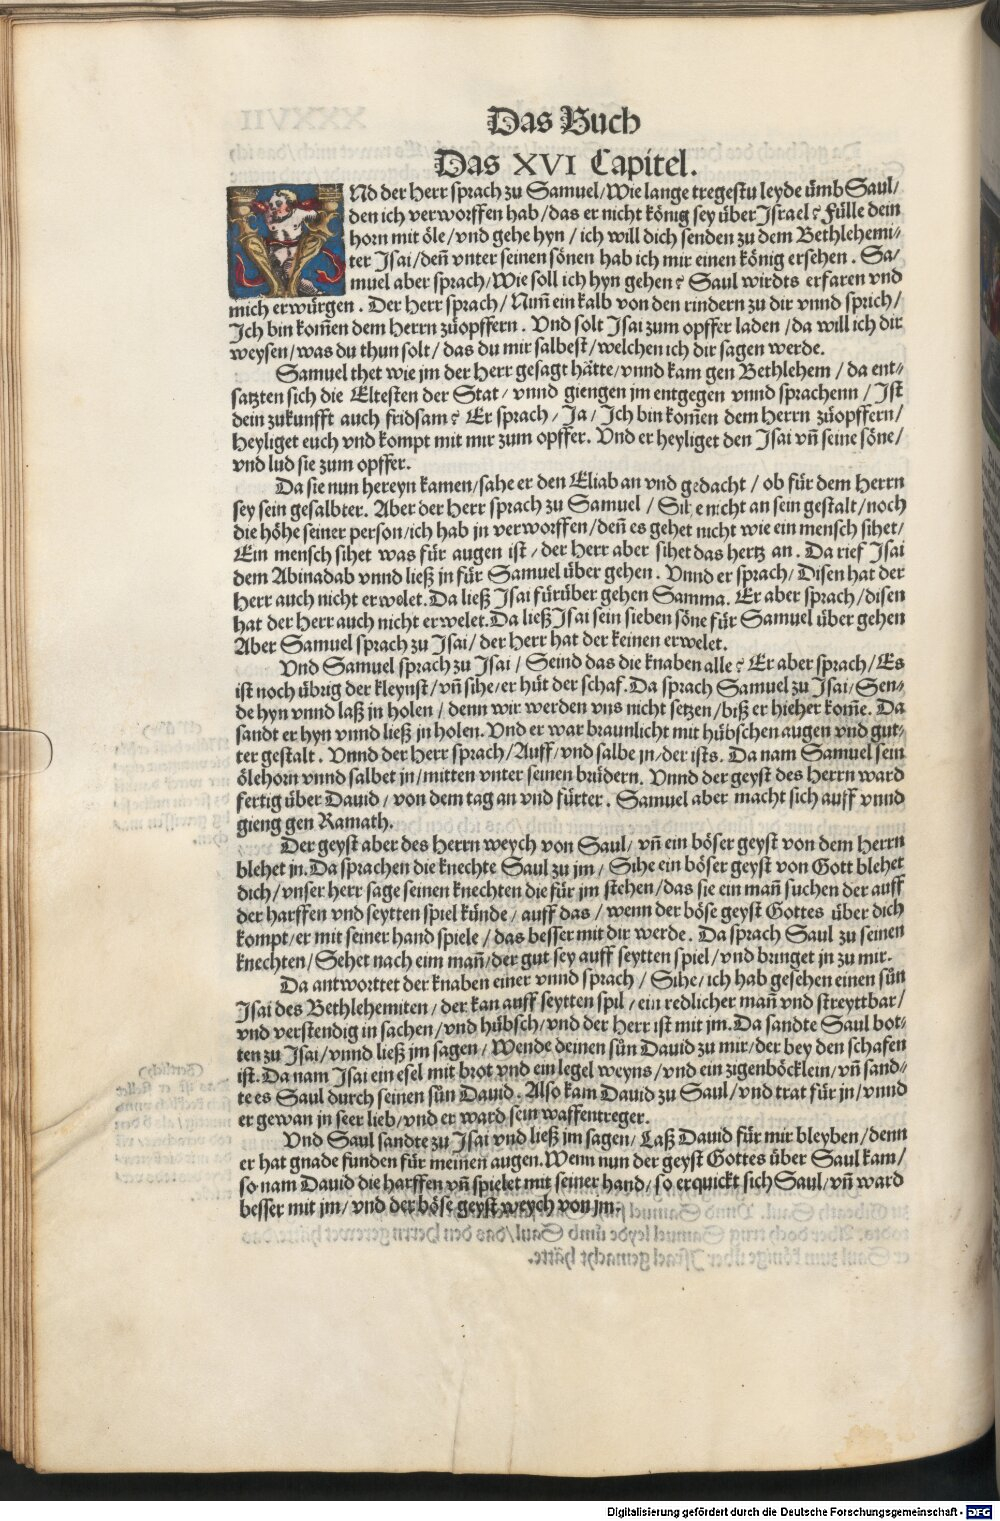 Das Buch
Das XVI Capitel.
VNd der Herr sprach zu Samuel/Wie lange tregestu leyde ümb Saul/
den ich verworffen hab/das er nicht könig sey über Israel? Fülle dein
horn mit öle/vnd gehe hyn/ich will dich senden zu dem Bethlehemi-
ter Isai/deñ vnter seinen sönen hab ich mir einen könig ersehen. Sa-
muel aber sprach/Wie soll ich hyn gehen? Saul wirdts erfaren vnd
mich erwürgen. Der Herr sprach/Nim̃ ein kalb von den rindern zu dir vnnd sprich/
Ich bin kom̃en dem Herrn zůopffern. Vnd solt Isai zum opffer laden/da will ich dir
weysen/was du thun solt/das du mir salbest/welchen ich dir sagen werde.
Samuel thet wie jm der Herr gesagt hätte/vnnd kam gen Bethlehem/da ent-
satzten sich die Eltesten der Stat/vnnd giengen jm entgegen vnnd sprachenn/Ist
dein zukunfft auch fridsam? Er sprach/Ja/Ich bin kom̃en dem Herrn zůopffern/
Heyliget euch vnd kompt mit mir zum opffer. Vnd er heyliget den Isai vñ seine söne/
vnd lud sie zum opffer.
Da sie nun hereyn kamen/sahe er den Eliab an vnd gedacht/ob für dem Herrn
sey sein gesalbter. Aber der Herr sprach zu Samuel/Sihe nicht an sein gestalt/noch
die höhe seiner person/ich hab jn verworffen/deñ es gehet nicht wie ein mensch sihet/
Ein mensch sihet was für augen ist/der Herr aber sihet das hertz an. Da rief Isai
dem Abinadab vnnd ließ jn für Samuel über gehen. Vnnd er sprach/Disen hat der
Herr auch nicht erwelet. Da ließ Isai fürüber gehen Samma. Er aber sprach/disen
hat der Herr auch nicht erwelet. Da ließ Isai sein sieben söne für Samuel über gehen
Aber Samuel sprach zu Isai/der Herr hat der keinen erwelet.
Vnd Samuel sprach zu Isai/Seind das die knaben alle? Er aber sprach/Es
ist noch übrig der kleynst/vñ sihe/er hüt der schaf. Da sprach Samuel zu Isai/Sen-
de hyn vnnd laß jn holen/denn wir werden vns nicht setzen/biß er hieher kom̃e. Da
sandt er hyn vnnd ließ jn holen. Vnd er war braunlicht mit hübschen augen vnd gut-
ter gestalt. Vnnd der Herr sprach/Auff/vnd salbe jn/der ists. Da nam Samuel sein
ölehorn vnnd salbet jn/mitten vnter seinen brüdern. Vnnd der geyst des Herrn ward
fertig über Dauid/von dem tag an vnd fürter. Samuel aber macht sich auff vnnd
gieng gen Ramath.
Der geyst aber des Herrn weych von Saul/vñ ein böser geyst von dem Herrn
blehet jn. Da sprachen die knechte Saul zu jm/Sihe ein böser geyst von Gott blehet
dich/vnser herr sage seinen knechten die für jm stehen/das sie ein mañ suchen der auff
der harffen vnd seytten spiel künde/auff das/wenn der böse geyst Gottes über dich
kompt/er mit seiner hand spiele/das besser mit dir werde. Da sprach Saul zu seinen
knechten/Sehet nach eim mañ/der gut sey auff seytten spiel/vnd bringet jn zu mir.
Da antworttet der knaben einer vnnd sprach/Sihe/ich hab gesehen einen sün
Isai des Bethlehemiten/der kan auff seytten spil/ein redlicher mañ vnd streyttbar/
vnd verstendig in sachen/vnd hübsch/vnd der Herr ist mit jm. Da sandte Saul bot-
ten zu Isai/vnnd ließ jm sagen/Wende deinen sün Dauid zu mir/der bey den schafen
ist. Da nam Isai ein esel mit brot vnd ein legel weyns/vnd ein zigenböcklein/vñ sand-
te es Saul durch seinen sün Dauid. Also kam Dauid zu Saul/vnd trat für jn/vnnd
er gewan jn seer lieb/vnd er ward sein waffentreger.
Vnd Saul sandte zu Isai vnd ließ jm sagen/Laß Dauid für mir bleyben/denn
er hat gnade funden für meinen augen. Wenn nun der geyst Gottes über Saul kam/
so nam Dauid die harffen vñ spielet mit seiner hand/so erquickt sich Saul/vñ ward
besser mit jm/vnd der böse geyst weych von jm.
Digitalisierung gefördert durch die Deutsche Forschungsgemeinschaft - DFG